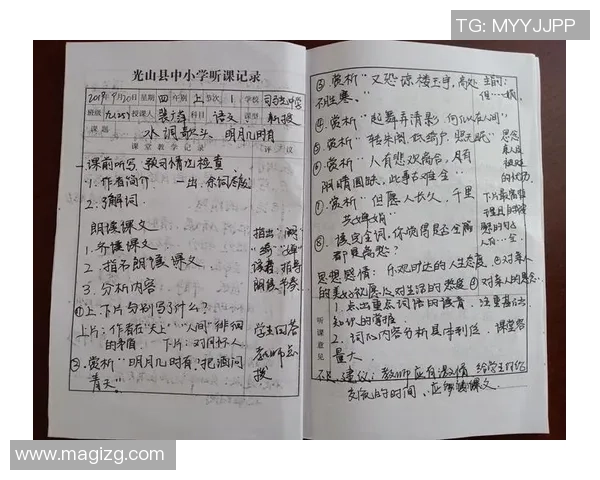 TG: MYYJJPP
光山县中小学听课记录
2019年9月20日 星期 四 年级 上 节次 1 学校
班级 九(25) 授课人 科目 语文 课型 新授
课题 水调歌头·明月几时有
课堂教学记录 评议
一课前听写、预习情况检查
1. 作者简介
2. 了解词
朗读课文
1. 齐读课文
2. 指名朗读课文
3. 分析内容
①上、下片句别写了什么?
上片:作者在"天上""人间"徘徊
的矛盾. 下片:对月怀人
②. 赏析"明月几时有,把酒问
青天".
指出:"阙"
读音,指导
朗读节奏.
学生回答
教师点
拨
③. 赏析"又恐琼楼玉宇,高处
不胜寒."
④. 赏析"起舞弄清影,何似在人间"
⑤. 赏析"转朱阁,低绮户,照无眠"
⑥ 赏析"人有悲欢离合,月有
阴晴圆缺,此事古难全"
⑦. 赏析"但愿人长久,千里
共婵娟"
⑧. 读完全词,你觉得是否全篇
都是离愁?
思想感情: 乐观旷达的人生态度
的美好祝愿 对生活的热爱 ④对亲人的思念.
听课意见
1. 点出重点词语的读音, 注重基础
知识的掌握
2. 词心内容分析具体到位. 课堂容
量大.
建议: 教师应有激情 给学生
交流的时间、应 课文.
www.magizg.com